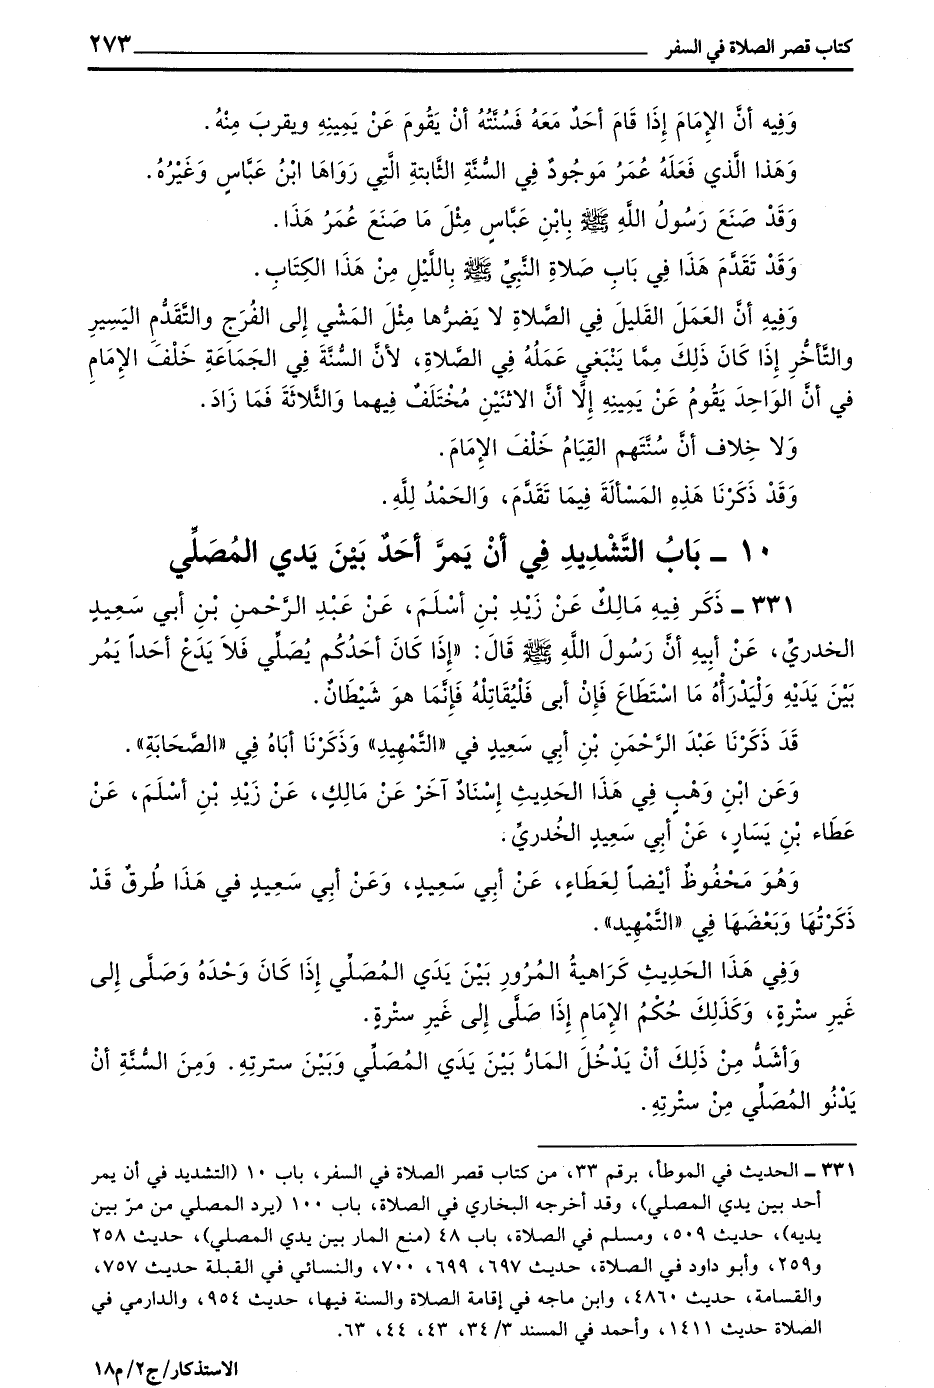 كتاب قصر الصلاة في السفر ٢٧٣
وَفِيه أنَّ الإِمَامَ إِذَا قَامَ أحَدٌ مَعَهُ فَسُنَّتُهُ أنْ يَقُومَ عَنْ يَمِينِهِ ويقربَ مِنْهُ.
وَهَذا الَّذي فَعَلَهُ عُمَرُ مَوجُودٌ فِي السُّنَّةِ الثَّابتةِ الَّتِي رَوَاهَا ابْنُ عَبَّاسٍ وَغَيْرُهُ.
وَقَدْ صَنَعَ رَسُولُ اللَّهِ ﷺ بِابْنِ عَبَّاسٍ مِثْلَ مَا صَنَعَ عُمَرُ هَذَا.
وَقَدْ تَقَدَّمَ هَذَا فِي بَابِ صَلاةِ النَّبِيِّ ﷺ بِاللَّيْلِ مِنْ هَذَا الكِتَابِ.
وَفِيهِ أنَّ العَمَلَ القَليلَ فِي الصَّلاةِ لا يَضرُّها مِثْلَ المَشْي إلى الفُرَجِ والتَّقَدُّمِ اليَسِيرِ
والتَّأخُّرِ إذَا كَانَ ذَلِكَ مِمَّا يَنْبَغي عَمَلُهُ فِي الصَّلاةِ، لأنَّ السُّنَّةَ فِي الجَمَاعَةِ خَلْفَ الإمَامِ
في أنَّ الوَاحِدَ يَقُومُ عَنْ يَمِينِهِ إلَّا أنَّ الاثنَيْنِ مُخْتَلَفٌ فِيهما وَالثَّلاثَةَ فَمَا زَادَ.
وَلا خِلاف أنَّ سُنَّتَهم القِيَامُ خَلْفَ الإمَامَ.
وَقَدْ ذَكَرْنَا هَذِهِ المَسْألَةَ فِيمَا تَقَدَّمَ، وَالحَمْدُ لِلَّهِ.
١٠ ـ بَابُ التَّشْدِيدِ فِي أنْ يَمرَّ أحَدٌ بَيْنَ يَدي المُصَلِّي
٣٣١ ـ ذَكَر فِيهِ مَالِكٌ عَنْ زَيْدِ بْنِ أسْلَمَ، عَنْ عَبْدِ الرَّحْمنِ بْنِ أبي سَعِيدٍ
الخدريِّ، عَنْ أبِيهِ أنَّ رَسُولَ اللَّهِ ﷺ قَالَ: «إذَا كَانَ أحَدُكُم يُصَلِّي فَلاَ يَدَعْ أحَداً يَمُر
بَيْنَ يَدَيْهِ وَلْيَدْرَأْهُ مَا اسْتَطَاعَ فَإنْ أبى فَلْيُقَاتِلْهُ فَإنَّمَا هوَ شَيْطَانٌ.
قَدَ ذَكَرْنَا عَبْدَ الرَّحْمَنِ بْنِ أبي سَعِيدٍ في «التَّمْهِيدِ» وَذَكَرْنَا أبَاهُ فِي «الصَّحَابَةِ».
وَعَن ابْنِ وَهْبٍ فِي هَذَا الحَدِيثِ إسْنَادٌ آخَرَ عَنْ مَالِكٍ، عَنْ زَيْدِ بْنِ أسْلَمَ، عَنْ
عَطَاء بْنِ يَسَارٍ، عَنْ أبي سَعِيدٍ الخُدريِّ.
وَهُوَ مَحْفُوظٌ أيْضاً لِعَطَاءٍ، عَنْ أبي سَعِيدٍ، وَعَنْ أبي سَعِيدٍ في هَذَا طُرقٌ قَدْ
ذَكَرْتُهَا وَبَعْضَهَا فِي «التَّمْهِيد».
وَفِي هَذَا الحَدِيثِ كَرَاهيةُ المُرُورِ بَيْنَ يَدَي المُصَلِّي إذَا كَانَ وَحْدَهُ وَصَلَّى إلى
غَيرِ ستْرةٍ، وَكَذَلِكَ حُكْمُ الإمَامِ إذَا صَلَّى إلى غَيرِ ستْرةٍ.
وَأشَدُّ مِنْ ذَلِكَ أنْ يَدْخُلَ المَارُّ بَيْنَ يَدَي المُصَلِّي وَبَيْنَ سترتِهِ. وَمِنَ السُّنَّةِ أنْ
يَدْنُو المُصَلِّي مِنْ ستْرتِهِ.
٣٣١ ـ الحديث في الموطأ، برقم ٣٣، من كتاب قصر الصلاة في السفر، باب ١٠ (التشديد في أن يمر
أحد بين يدي المصلي)، وقد أخرجه البخاري في الصلاة، باب ١٠٠ (يرد المصلي من مرّ بين
يديه)، حديث ٥٠٩، ومسلم في الصلاة، باب ٤٨ (منع المار بين يدي المصلي)، حديث ٢٥٨
و٢٥٩، وأبو داود في الصلاة، حديث ٦٩٧، ٦٩٩، ٧٠٠، والنسائي في القبلة حديث ٧٥٧،
والقسامة، حديث ٤٨٦٠، وابن ماجه في إقامة الصلاة والسنة فيها، حديث ٩٥٤، والدارمي في
الصلاة حديث ١٤١١، وأحمد في المسند ٣/ ٣٤، ٤٣، ٤٤، ٦٣.
الاستذكار/ ج٢/ م١٨